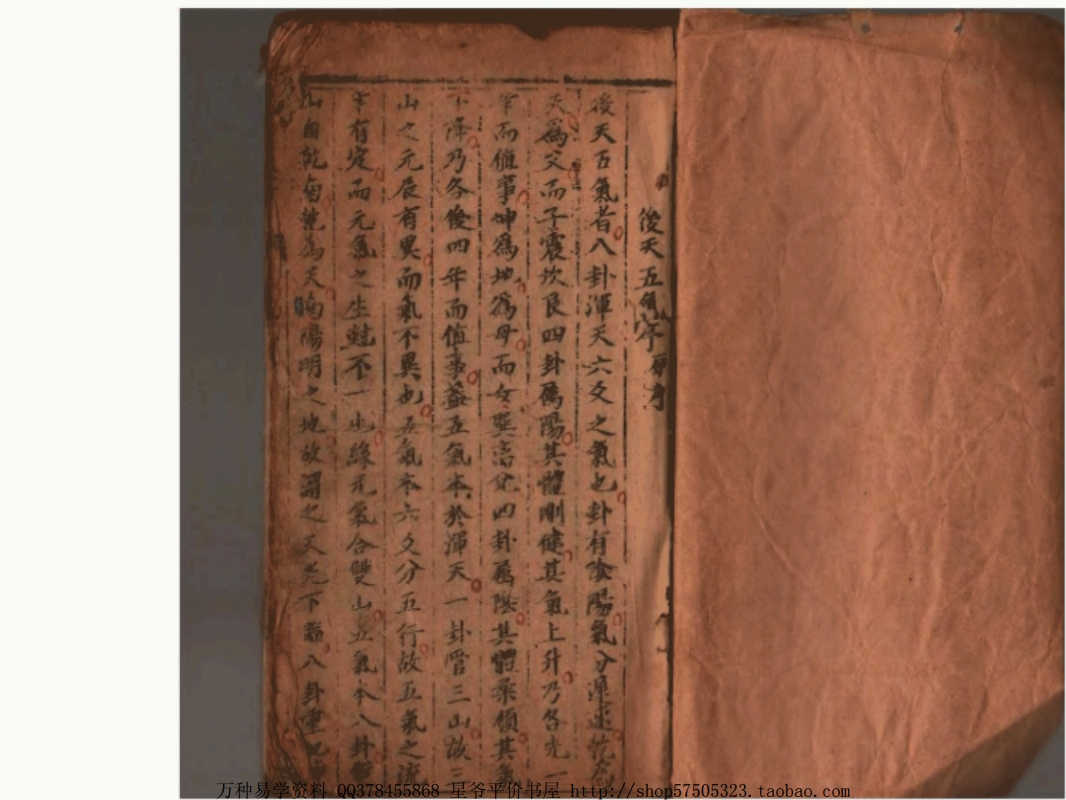 後天五氣序
後天五氣者八卦渾天六爻之氣也卦有陰陽氣分遲速乾為
天為父而子震坎艮四卦屬陽其體剛健其氣上升乃各先一
年而值事坤為地為母而女巽离兌四卦屬陰其體柔順其氣
下降乃各後四年而值事蓋五氣本於渾天一卦管三山故三
山之元辰有異而氣不異也五氣本六爻分五行故五氣之流
年有定而元氣之生尅不一也緣元氣合雙山五氣本八卦
山自乾為天為陽明之地故謂之天光下臨八卦
万种易学资料 QQ378455868 星爷平价书屋 http://shop57505323.taobao.com